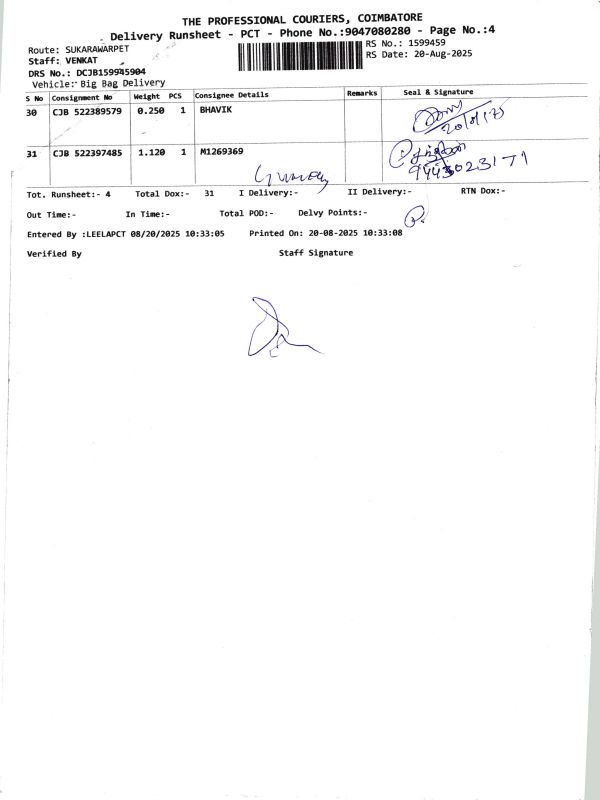 THE PROFESSIONAL COURIERS, COIMBATORE
Delivery Runsheet - PCT - Phone No.:9047080280 - Page No.:4
Route: SUKARAWARPET
RS No.: 1599459
Staff: VENKAT
RS Date: 20-Aug-2025
DRS No.: DCJB159945904
Vehicle: Big Bag Delivery
S No Consignment No Weight PCS Consignee Details Remarks Seal & Signature
30 CJB 522389579 0.250 1 BHAVIK
20/8/17
31 CJB 522397485 1.120 1 M1269369
9443023171
Tot. Runsheet:- 4 Total Dox:- 31 I Delivery:- II Delivery:- RTN Dox:-
Out Time:- In Time:- Total POD:- Delvy Points:-
Entered By :LEELAPCT 08/20/2025 10:33:05 Printed On: 20-08-2025 10:33:08
Verified By Staff Signature